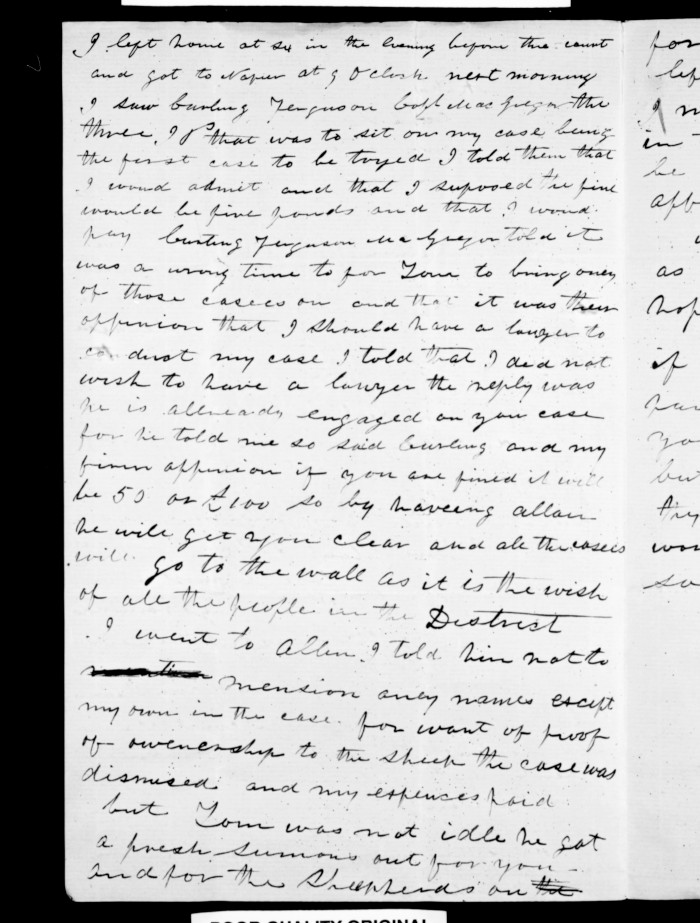 I left home at six in the Evening before the court
and got to Napier at 9 O Clock next morning
I saw Curling Ferguson Capt MacGregor the
three. J P that was to sit on my case being
the first case to be tryed I told them that
I woud admit and that I suposed the fine
would be five pounds and that I woud
pay Curling Ferguson MacGregor told it
was a wrong time to for Tom to bring oney
of those casees on and that it was their
oppinion that I should have a lawyer to
conduct my case I told that I did not
wish to have a lawyer the reply was
he is allready engaged on you case
for he told me so said Curling and my
firm oppinion if you are fined it will
be 50 or £100 so by haveing allan
he will get you clear and all the casees
will go to the wall as it is the wish
of all the people in the District
I went to Allen I told him not to
mension aney names except
my own in the case. for want of proof
of owenership to the sheep the case was
dismised and my expences paid
but Tom was not idle he got
a fresh sumons out for you -
and for the Sheepherds on the
for
lef
I
in
be
aff
as
hop
if
yo
but
they
wou